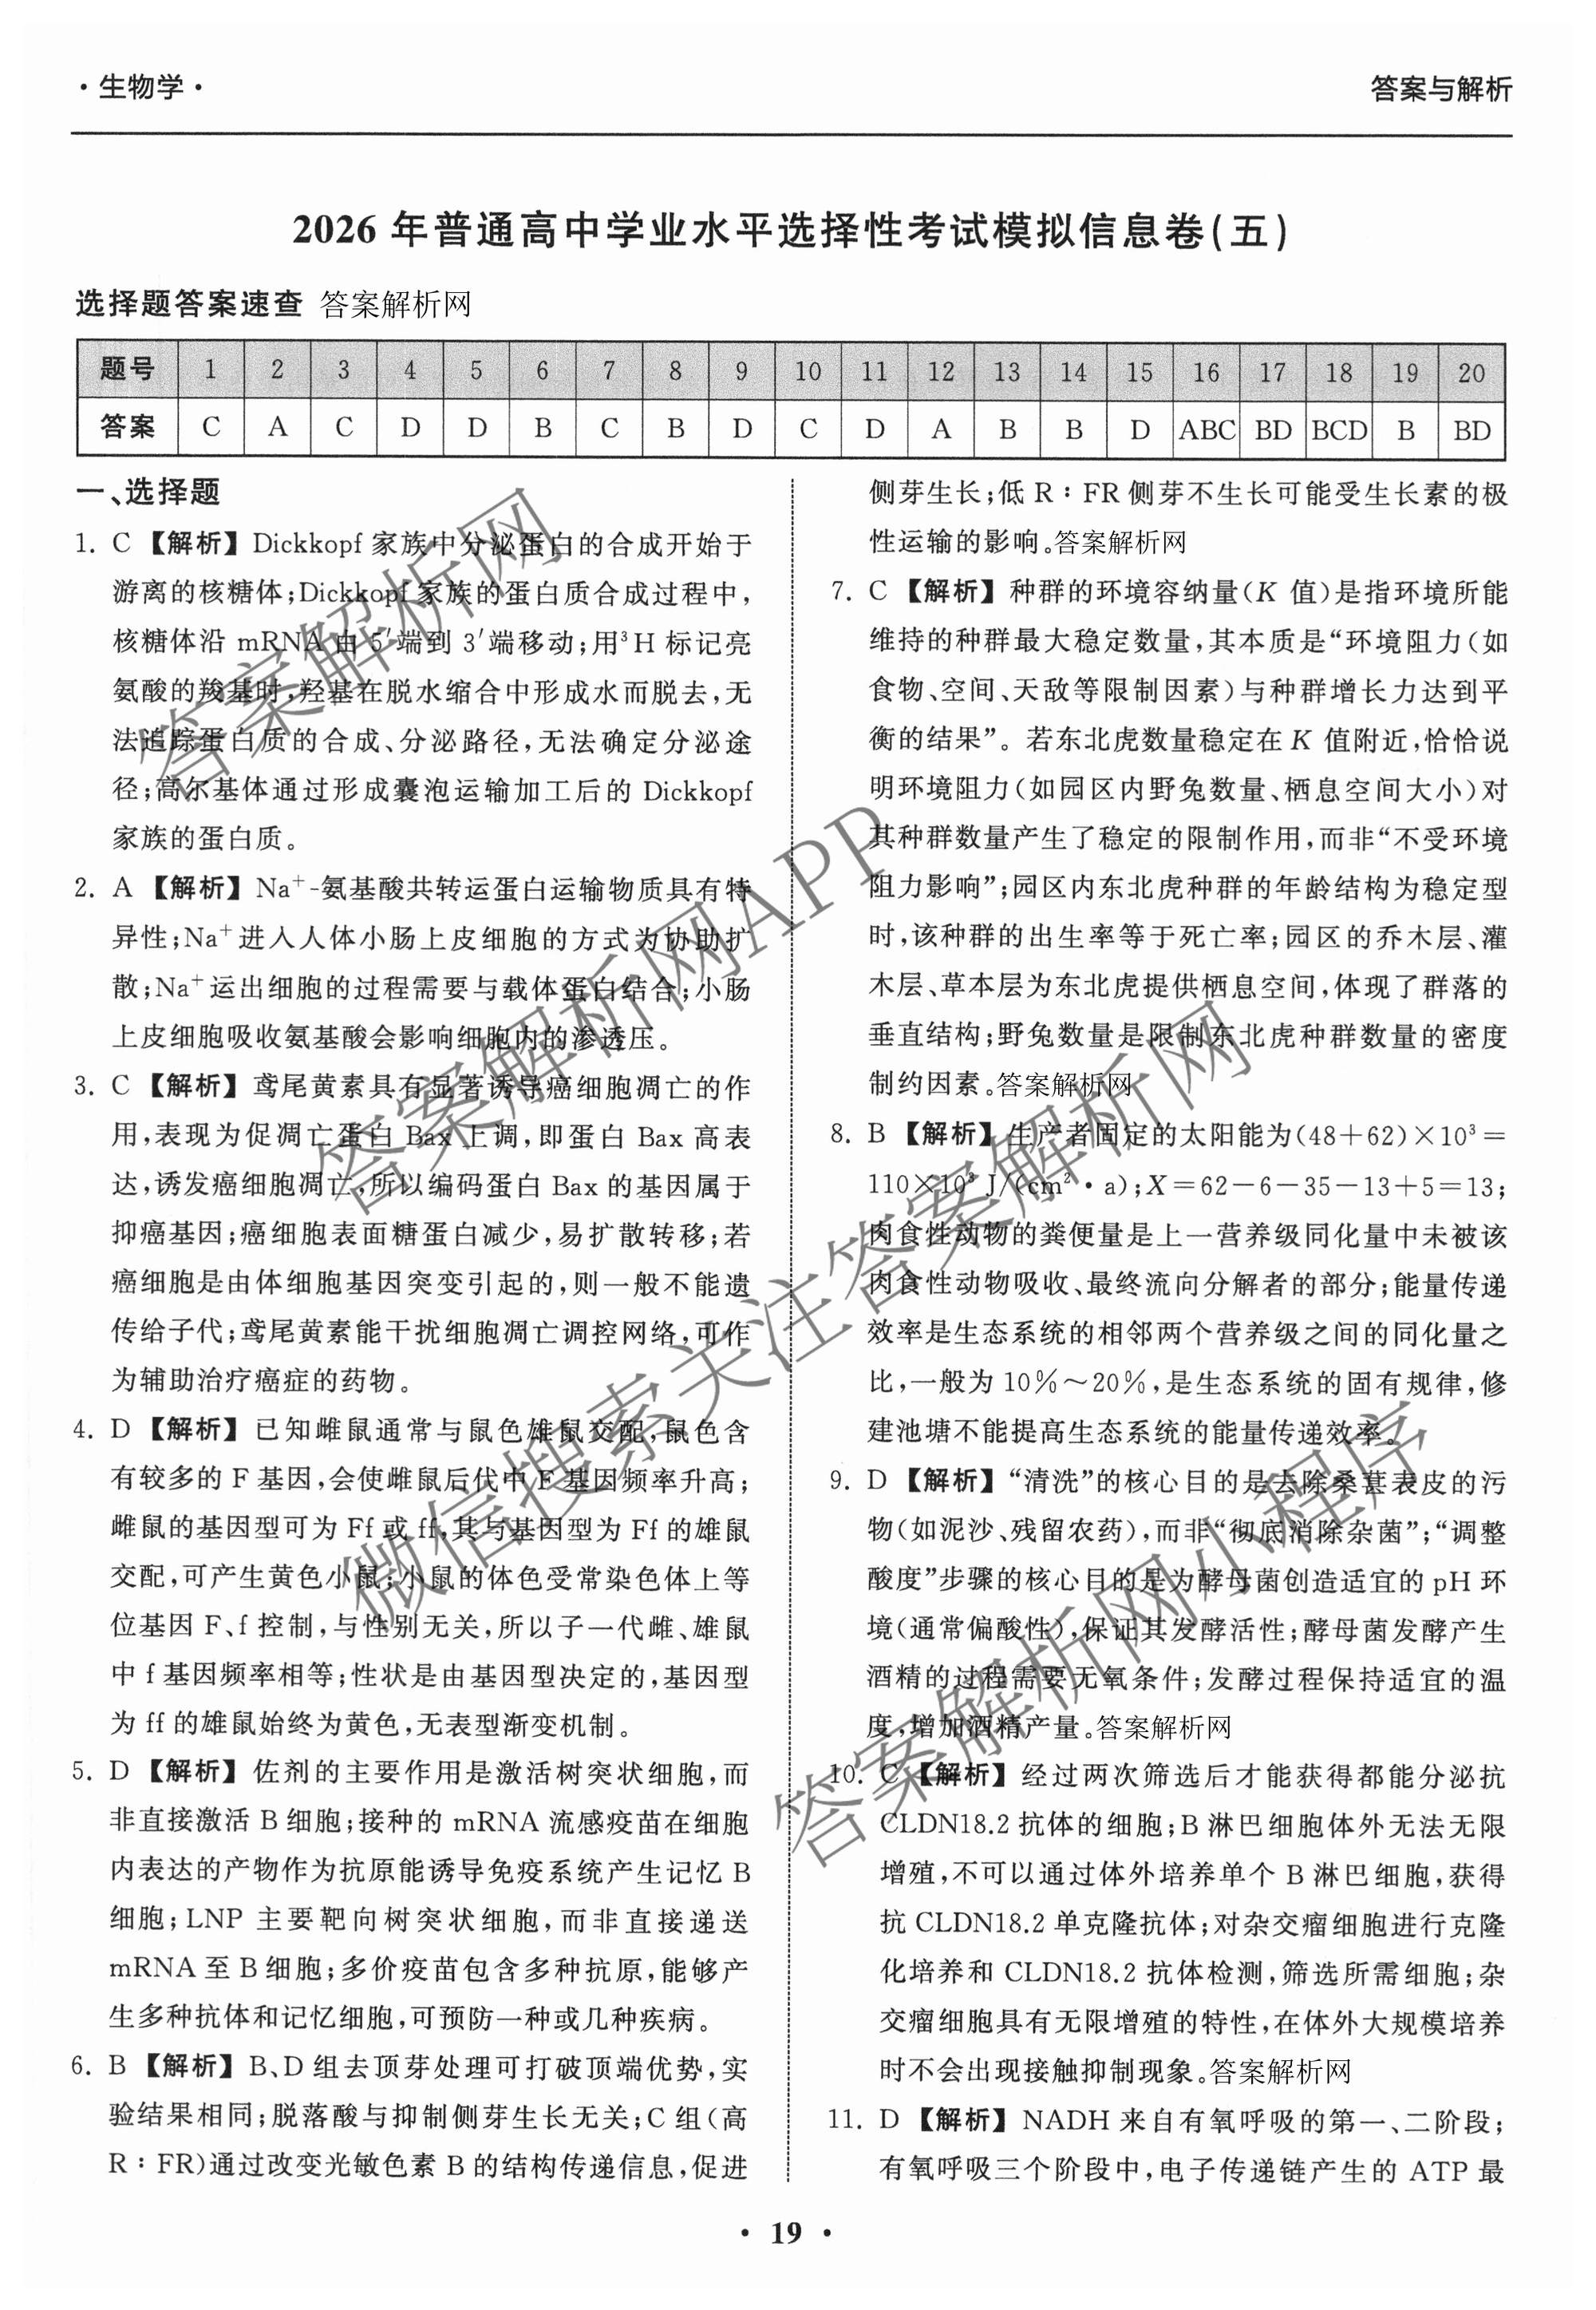 ·生物学·
答案与解析
2026 年普通高中学业水平选择性考试模拟信息卷(五)
选择题答案速查 答案解析网
题号 1 2 3 4 5 6 7 8 9 10 11 12 13 14 15 16 17 18 19 20
答案 C A C D D B C B D C D A B B D ABC BD BCD B BD
一、选择题
1. C 【解析】Dickkopf 家族中分泌蛋白的合成开始于
游离的核糖体;Dickkopf 家族的蛋白质合成过程中,
核糖体沿 mRNA 由 5′端到 3′端移动;用³H 标记亮
氨酸的羧基时,羟基在脱水缩合中形成水而脱去,无
法追踪蛋白质的合成、分泌路径,无法确定分泌途
径;高尔基体通过形成囊泡运输加工后的 Dickkopf
家族的蛋白质。
2. A 【解析】Na⁺-氨基酸共转运蛋白运输物质具有特
异性;Na⁺进入人体小肠上皮细胞的方式为协助扩
散;Na⁺运出细胞的过程需要与载体蛋白结合;小肠
上皮细胞吸收氨基酸会影响细胞内的渗透压。
3. C 【解析】鸢尾黄素具有显著诱导癌细胞凋亡的作
用,表现为促凋亡蛋白 Bax 上调,即蛋白 Bax 高表
达,诱发癌细胞凋亡,所以编码蛋白 Bax 的基因属于
抑癌基因;癌细胞表面糖蛋白减少,易扩散转移;若
癌细胞是由体细胞基因突变引起的,则一般不能遗
传给子代;鸢尾黄素能干扰细胞凋亡调控网络,可作
为辅助治疗癌症的药物。
4. D 【解析】已知雌鼠通常与鼠色雄鼠交配,鼠色含
有较多的 F 基因,会使雌鼠后代中 F 基因频率升高;
雌鼠的基因型可为 Ff 或 ff,其与基因型为 Ff 的雄鼠
交配,可产生黄色小鼠;小鼠的体色受常染色体上等
位基因 F、f 控制,与性别无关,所以子一代雌、雄鼠
中 f 基因频率相等;性状是由基因型决定的,基因型
为 ff 的雄鼠始终为黄色,无表型渐变机制。
5. D 【解析】佐剂的主要作用是激活树突状细胞,而
非直接激活 B 细胞;接种的 mRNA 流感疫苗在细胞
内表达的产物作为抗原能诱导免疫系统产生记忆 B
细胞;LNP 主要靶向树突状细胞,而非直接递送
mRNA 至 B 细胞;多价疫苗包含多种抗原,能够产
生多种抗体和记忆细胞,可预防一种或几种疾病。
6. B 【解析】B、D 组去顶芽处理可打破顶端优势,实
验结果相同;脱落酸与抑制侧芽生长无关;C 组(高
R∶FR)通过改变光敏色素 B 的结构传递信息,促进
侧芽生长;低 R∶FR 侧芽不生长可能受生长素的极
性运输的影响。答案解析网
7. C 【解析】种群的环境容纳量(K 值)是指环境所能
维持的种群最大稳定数量,其本质是“环境阻力(如
食物、空间、天敌等限制因素)与种群增长力达到平
衡的结果”。若东北虎数量稳定在 K 值附近,恰恰说
明环境阻力(如园区内野兔数量、栖息空间大小)对
其种群数量产生了稳定的限制作用,而非“不受环境
阻力影响”;园区内东北虎种群的年龄结构为稳定型
时,该种群的出生率等于死亡率;园区的乔木层、灌
木层、草本层为东北虎提供栖息空间,体现了群落的
垂直结构;野兔数量是限制东北虎种群数量的密度
制约因素。答案解析网
8. B 【解析】生产者固定的太阳能为(48+62)×10³=
110×10³ J/(cm²·a);X=62-6-35-13+5=13;
肉食性动物的粪便量是上一营养级同化量中未被该
肉食性动物吸收、最终流向分解者的部分;能量传递
效率是生态系统的相邻两个营养级之间的同化量之
比,一般为 10%～20%,是生态系统的固有规律,修
建池塘不能提高生态系统的能量传递效率。
9. D 【解析】“清洗”的核心目的是去除桑葚表皮的污
物(如泥沙、残留农药),而非“彻底消除杂菌”;“调整
酸度”步骤的核心目的是为酵母菌创造适宜的 pH 环
境(通常偏酸性),保证其发酵活性;酵母菌发酵产生
酒精的过程需要无氧条件;发酵过程保持适宜的温
度,增加酒精产量。答案解析网
10. C 【解析】经过两次筛选后才能获得都能分泌抗
CLDN18.2 抗体的细胞;B 淋巴细胞体外无法无限
增殖,不可以通过体外培养单个 B 淋巴细胞,获得
抗 CLDN18.2 单克隆抗体;对杂交瘤细胞进行克隆
化培养和 CLDN18.2 抗体检测,筛选所需细胞;杂
交瘤细胞具有无限增殖的特性,在体外大规模培养
时不会出现接触抑制现象。答案解析网
11. D 【解析】NADH 来自有氧呼吸的第一、二阶段;
有氧呼吸三个阶段中,电子传递链产生的 ATP 最
· 19 ·
答案解析网
答案解析网APP
微信搜索关注答案解析网
答案解析网小程序